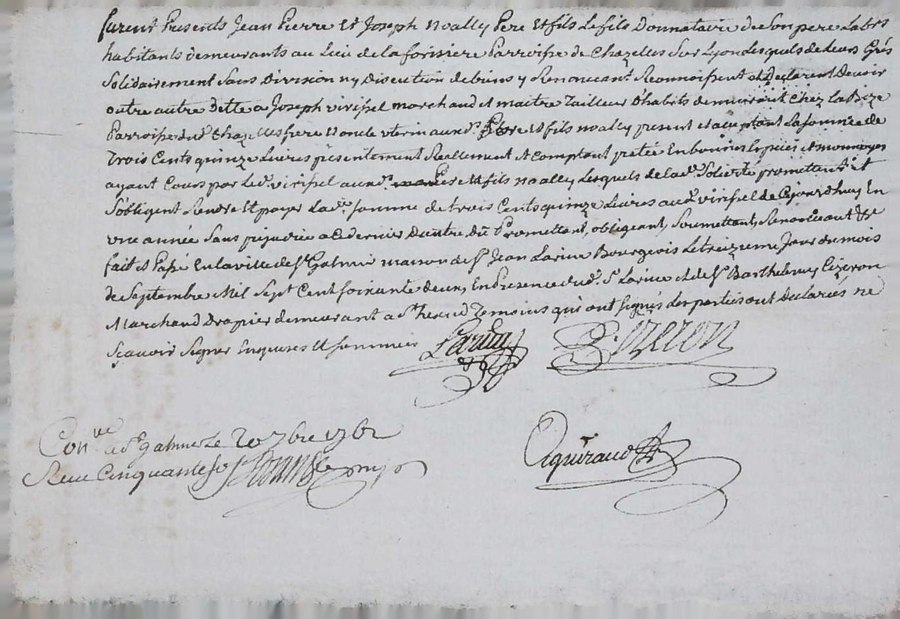 furent Presents Jean Pierre Et Joseph noally Pere Et fils Le fils Donnataire du Son pere Lab.rs
habitants demeurants au Lieu de la forisiere Parroisse de Chazelles Sur Lyon Lesquels de leurs Grés
Solidairement Sans Division ny Discution de biens y Renonceant Reconnoissent et Declarent Devoir
outre autre dette a Joseph virissel marchand et maitre Tailleur d'habits demeurant chez La
Parroisse du d. Chazelles frere Et oncle uterin aux d. Pere Et fils noally present et acceptant La Somme de
Trois Cents quinze Livres presentement Reellement Et Comptant pretée En bonnes Especes et monnoyes
ayant Cours par Le d. virissel aux d. Et fils noally Lesquels de la d. Solidité promettent et
Sobligent Rendre Et payer La d. Somme de trois Cents quinze Livres au d. virissel de Cejourdhuy En
une année Sans prejudice a Ce dernier D'autre Dû Promettant, obligeant, Soumettant, Renonceant &c
fait et Passé En la ville de S.t Galmier maison de S.r Jean Larive Bourgeois Le treizieme Jour du mois
de Septembre Mil Sept Cent Soixante deux En Presence du d. S.r Larive et de S.r Barthelemy Cizeron
Marchand Drapier demeurant a S.t heand Temoins qui ont Signés Les parties ont Declarées ne
Scavoir Signer Enquises Et Sommeés
Larive Cizeron
Con.lle a S.t galmier Le 20 7bre 1762
Reçu Cinquante